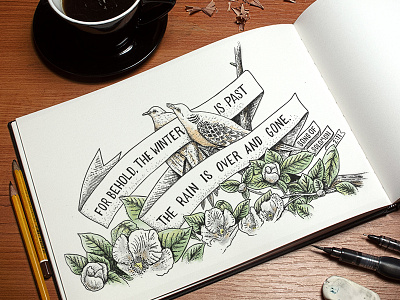 FOR BEHOLD, THE WINTER IS PAST
THE RAIN IS OVER AND GONE.
SONG OF
SOLOMON
2:11